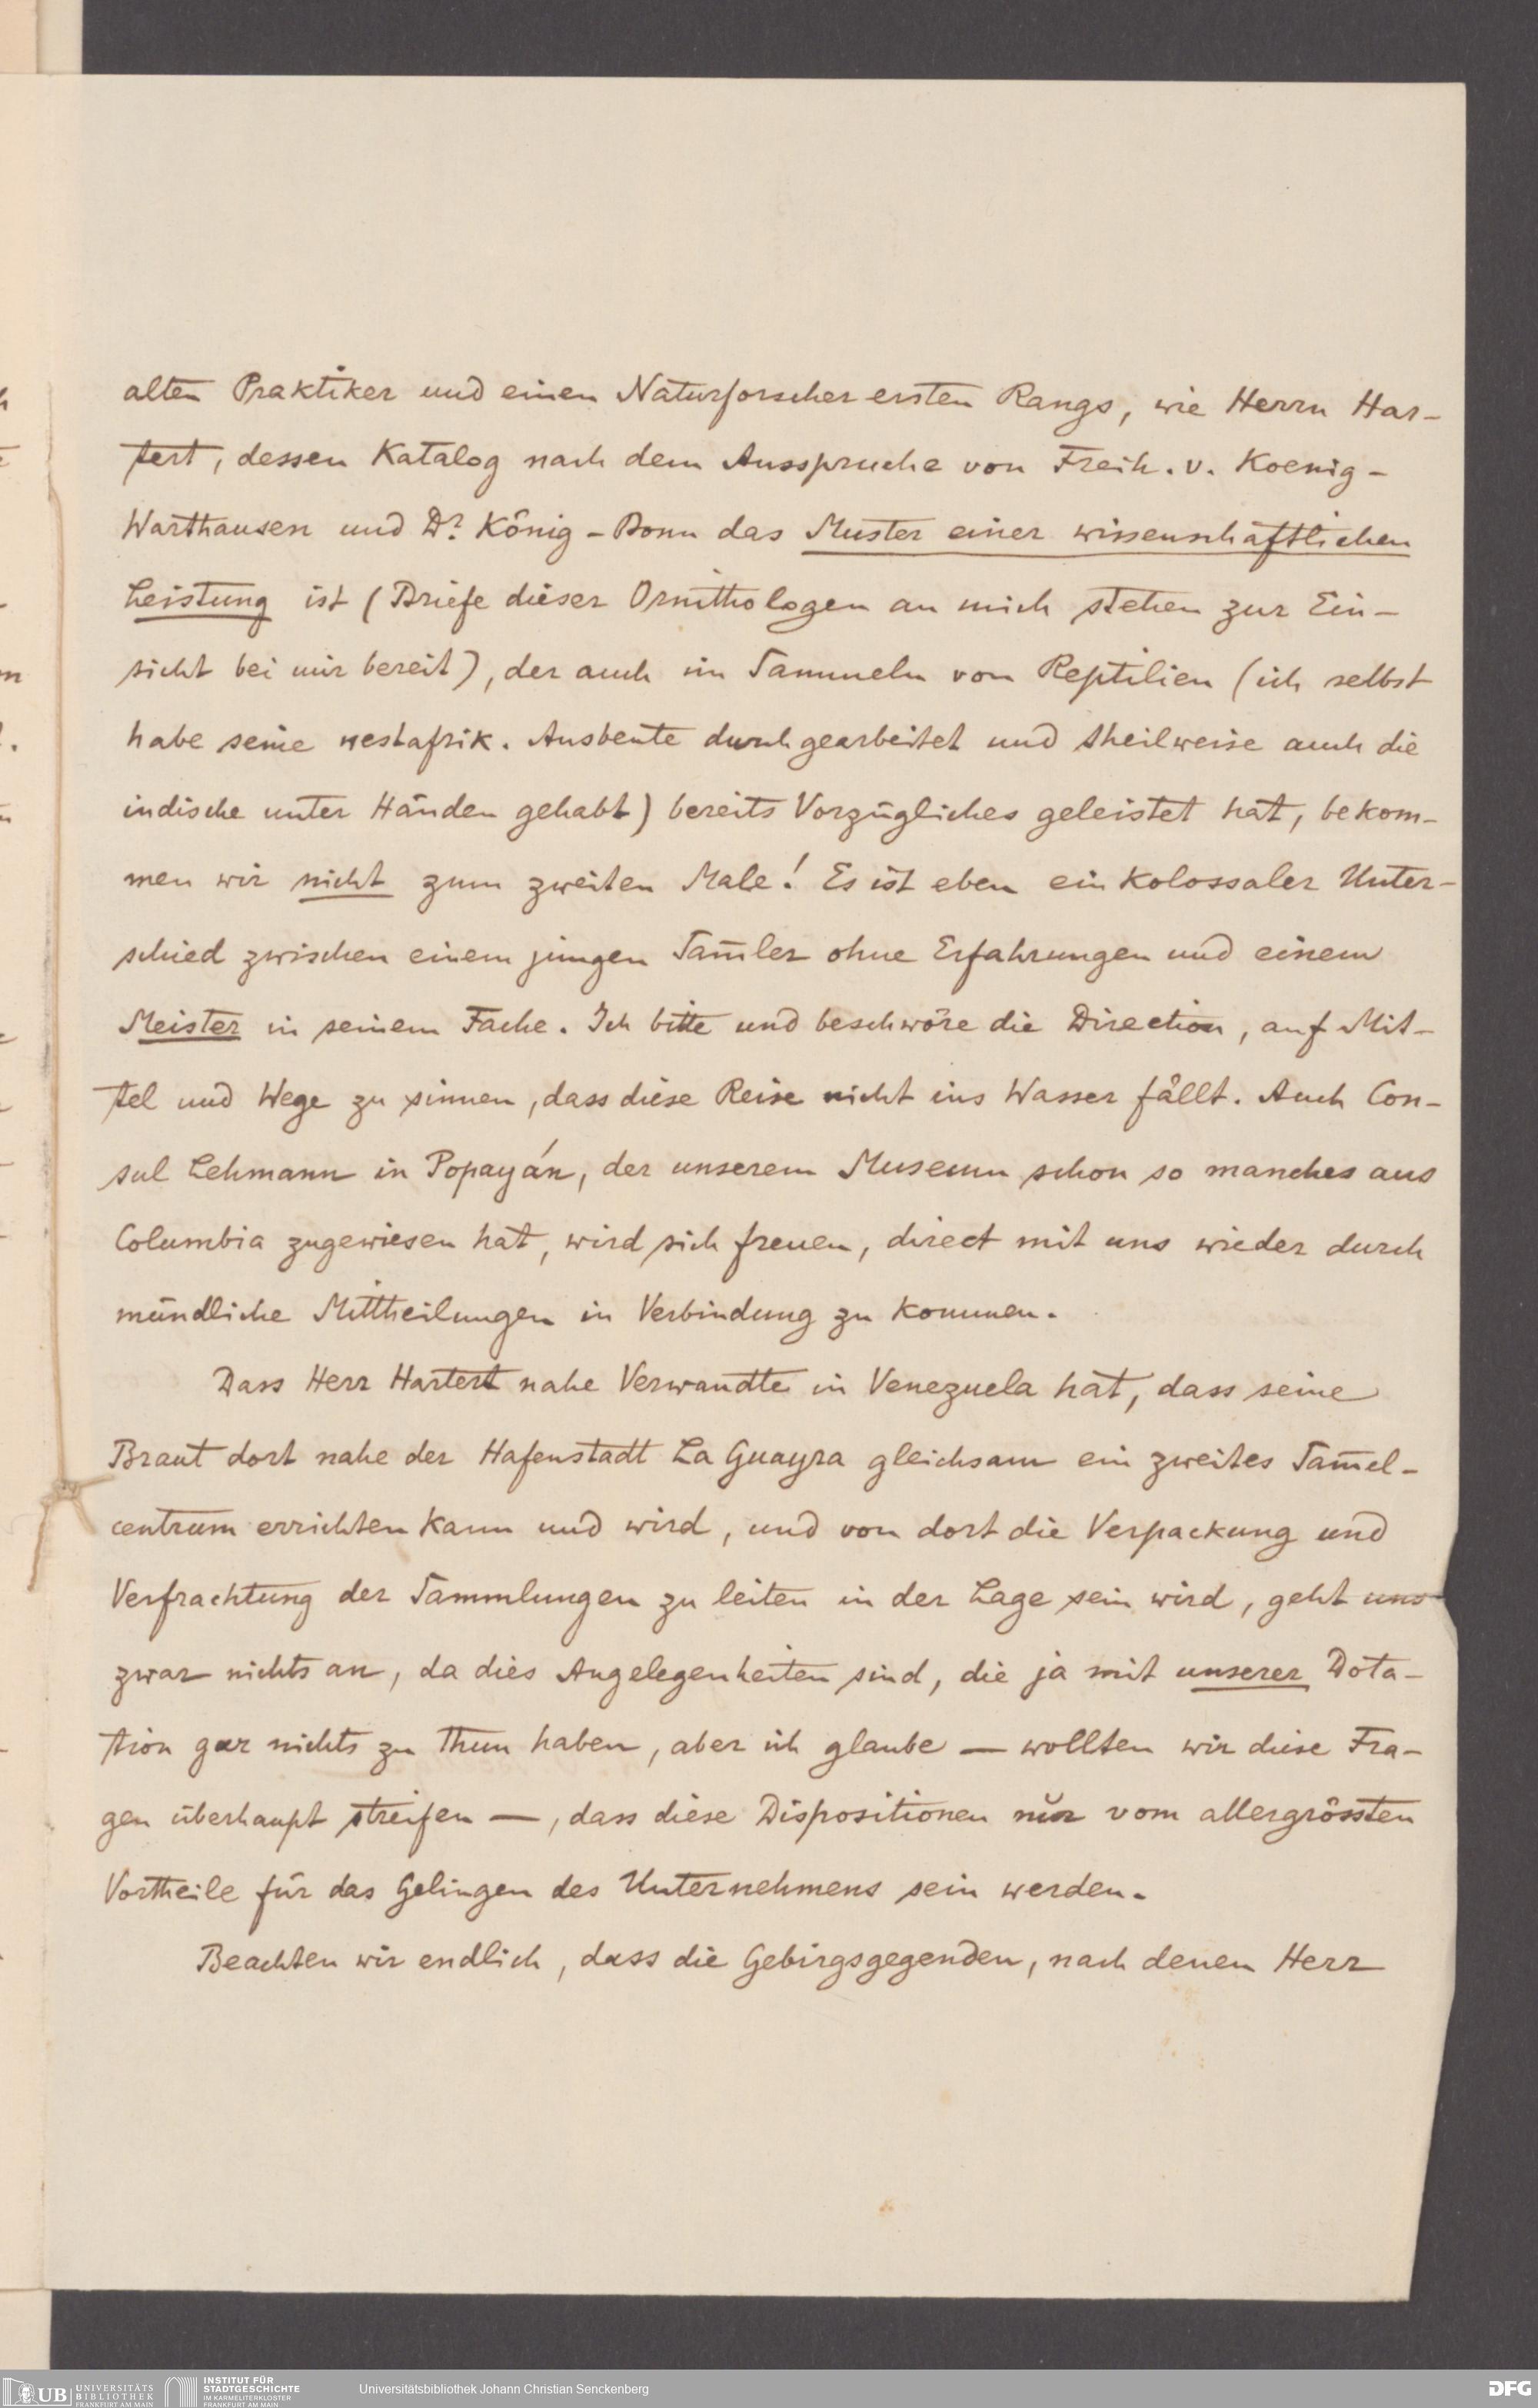 alten Praktiker und einen Naturforscher ersten Rangs, wie Herrn Har-
tert, dessen Katalog nach dem Ausspruche von Freih. v. Koenig-
Warthausen und Dr. König-Bonn das Muster einer wissenschaftlichen
Leistung ist (Briefe dieser Ornithologen an mich stehen zur Ein-
sicht bei mir bereit), der auch im Sammeln von Reptilien (ich selbst
habe seine westafrik. Ausbeute durchgearbeitet und theilweise auch die
indische unter Händen gehabt) bereits Vorzügliches geleistet hat, bekom-
men wir nicht zum zweiten Male! Es ist eben ein kolossaler Unter-
schied zwischen einem jungen Sam̅ler ohne Erfahrungen und einem
Meister in seinem Fache. Ich bitte und beschwöre die Direction, auf Mit-
tel und Wege zu sinnen, dass diese Reise nicht ins Wasser fällt. Auch Con-
sul Lehmann in Popayán, der unserem Museum schon so manches aus
Columbia zugewiesen hat, wird sich freuen, direct mit uns wieder durch
mündliche Mittheilungen in Verbindung zu kommen.
Dass Herr Hartert nahe Verwandte in Venezuela hat, dass seine
Braut dort nahe der Hafenstadt La Guayra gleichsam ein zweites Sam̅el-
centrum errichten kann und wird, und von dort die Verpackung und
Verfrachtung der Sammlungen zu leiten in der Lage sein wird, geht uns
zwar nichts an, da dies Angelegenheiten sind, die ja mit unserer Dota-
tion gar nichts zu thun haben, aber ich glaube — wollten wir diese Fra-
gen überhaupt streifen —, dass diese Dispositionen nur vom allergrössten
Vortheile für das Gelingen des Unternehmens sein werden.
Beachten wir endlich, dass die Gebirgsgegenden, nach denen Herr
UB UNIVERSITÄTS BIBLIOTHEK FRANKFURT AM MAIN
INSTITUT FÜR STADTGESCHICHTE IM KARMELITERKLOSTER FRANKFURT AM MAIN
Universitätsbibliothek Johann Christian Senckenberg
DFG